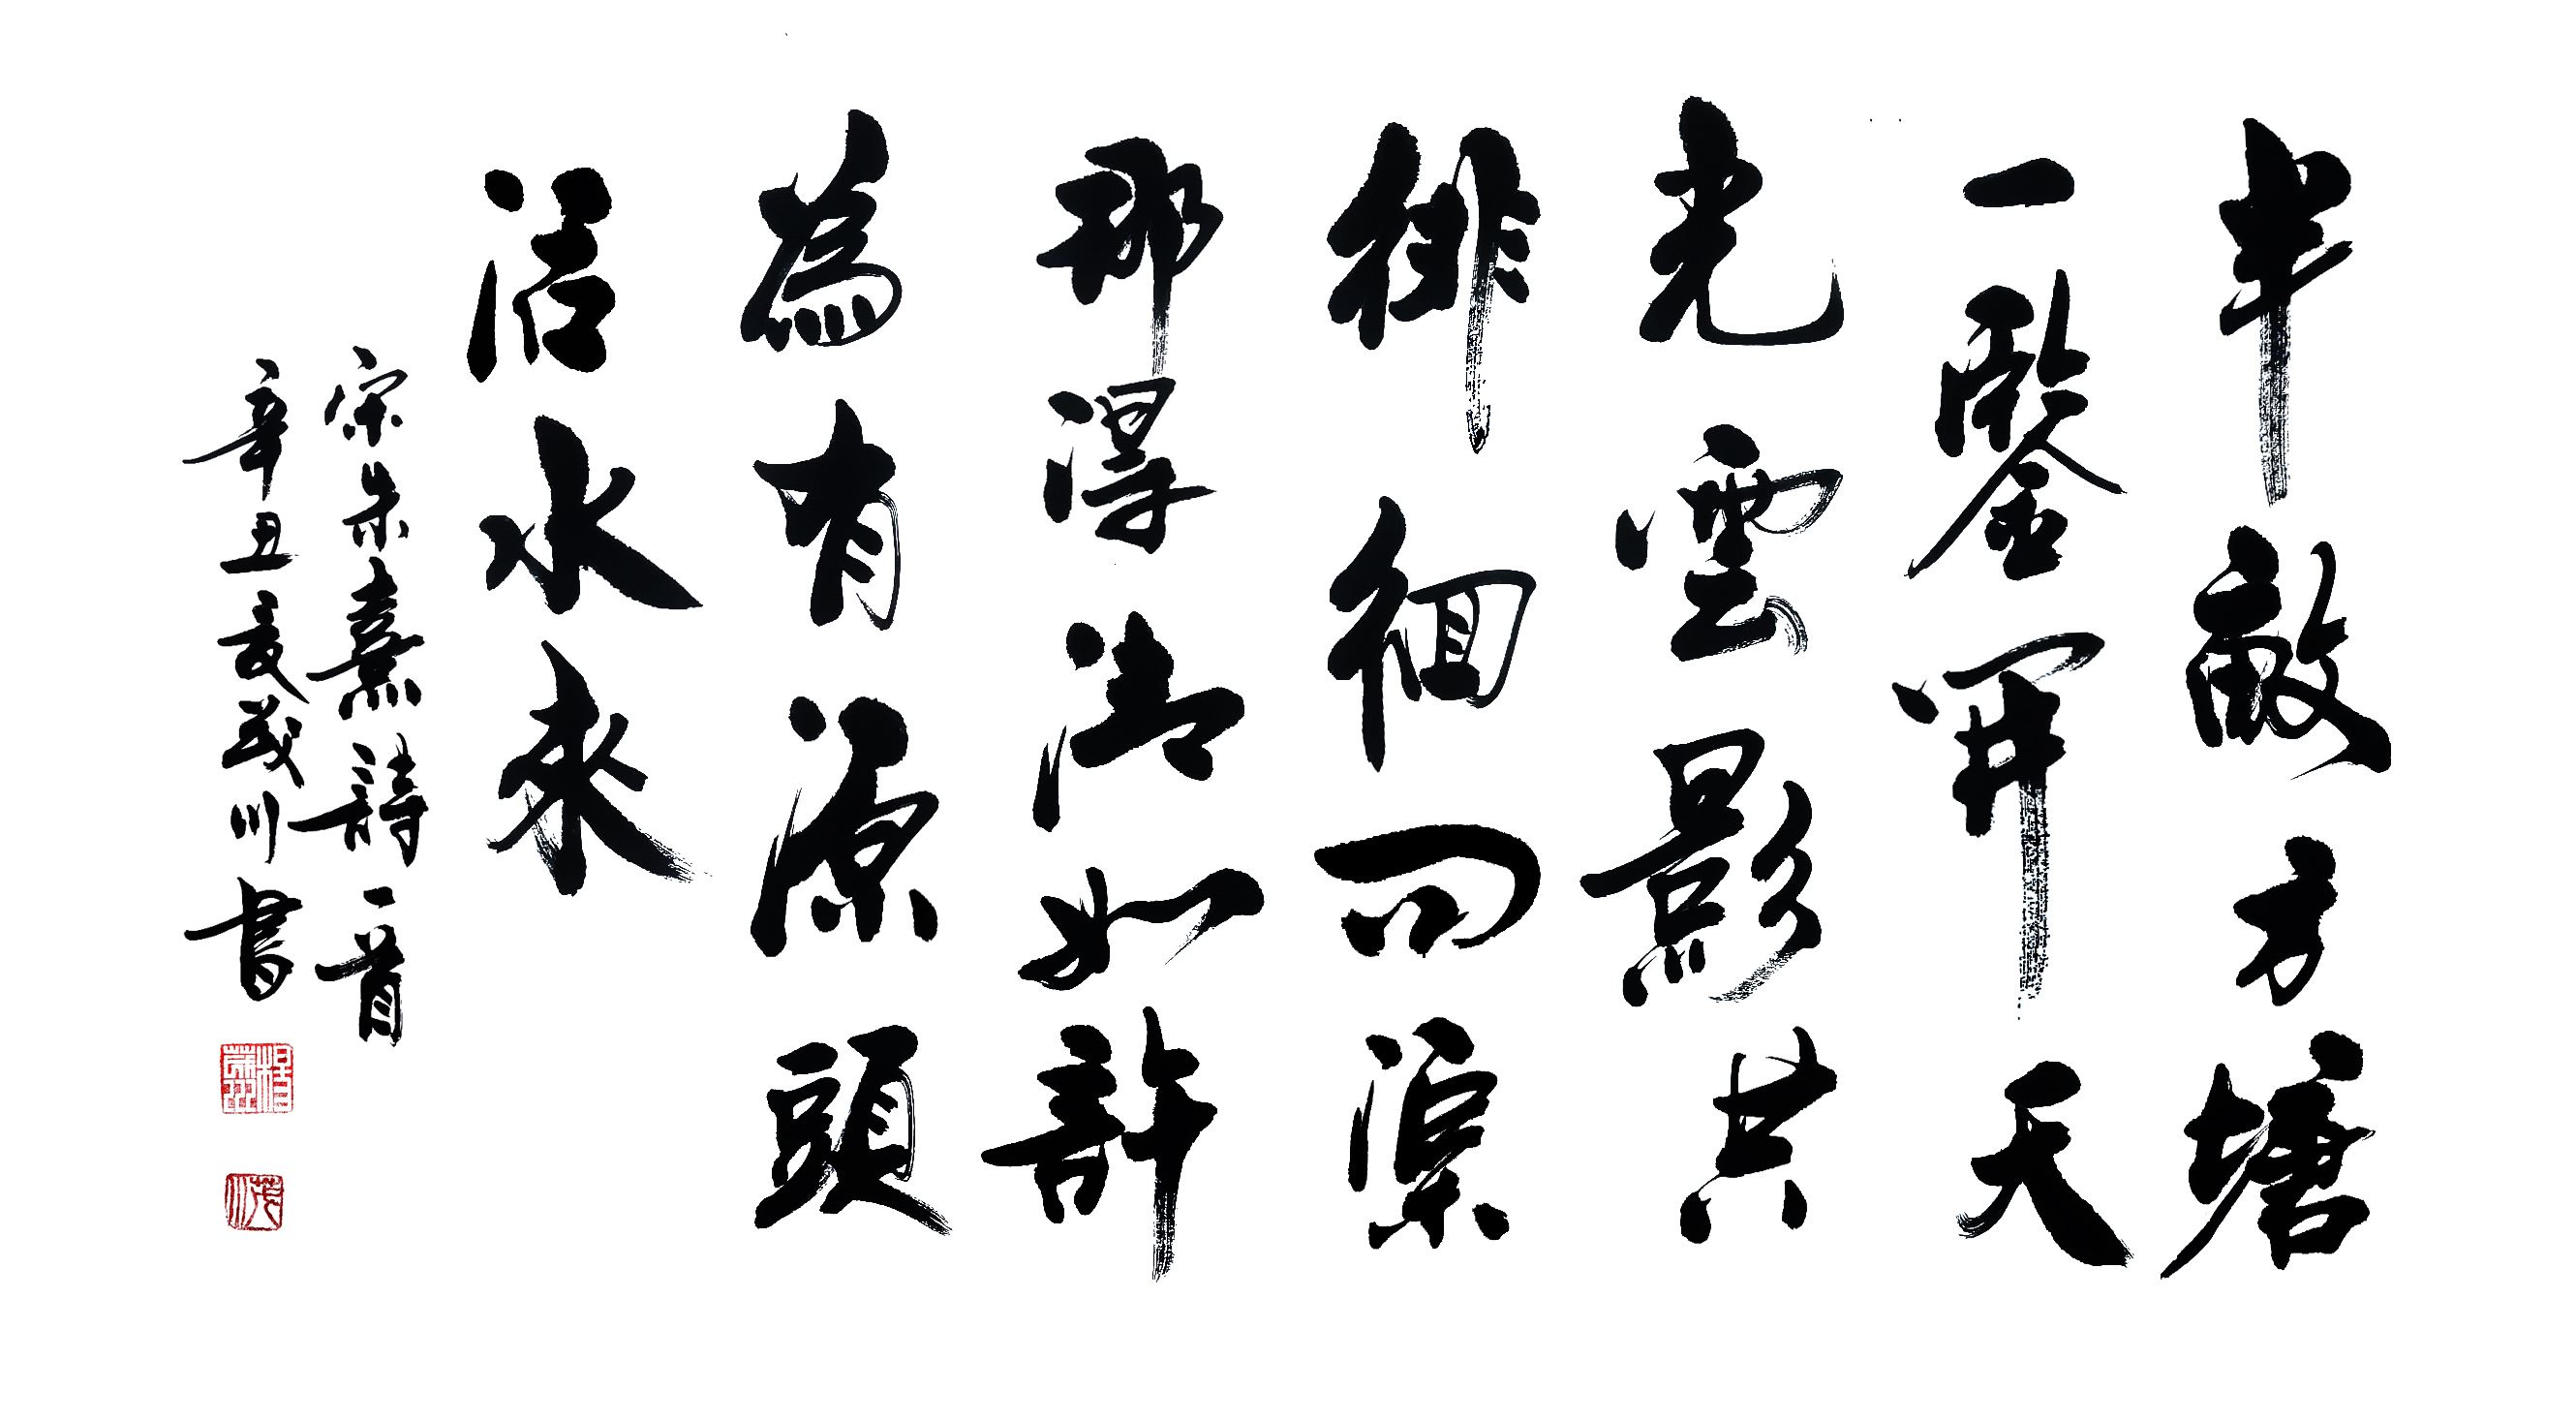 半畝方塘
一鑒開天
光雲影共
徘徊問渠
那得清如許
為有源頭
活水來
宋朱熹詩一首
辛丑夏茂川書